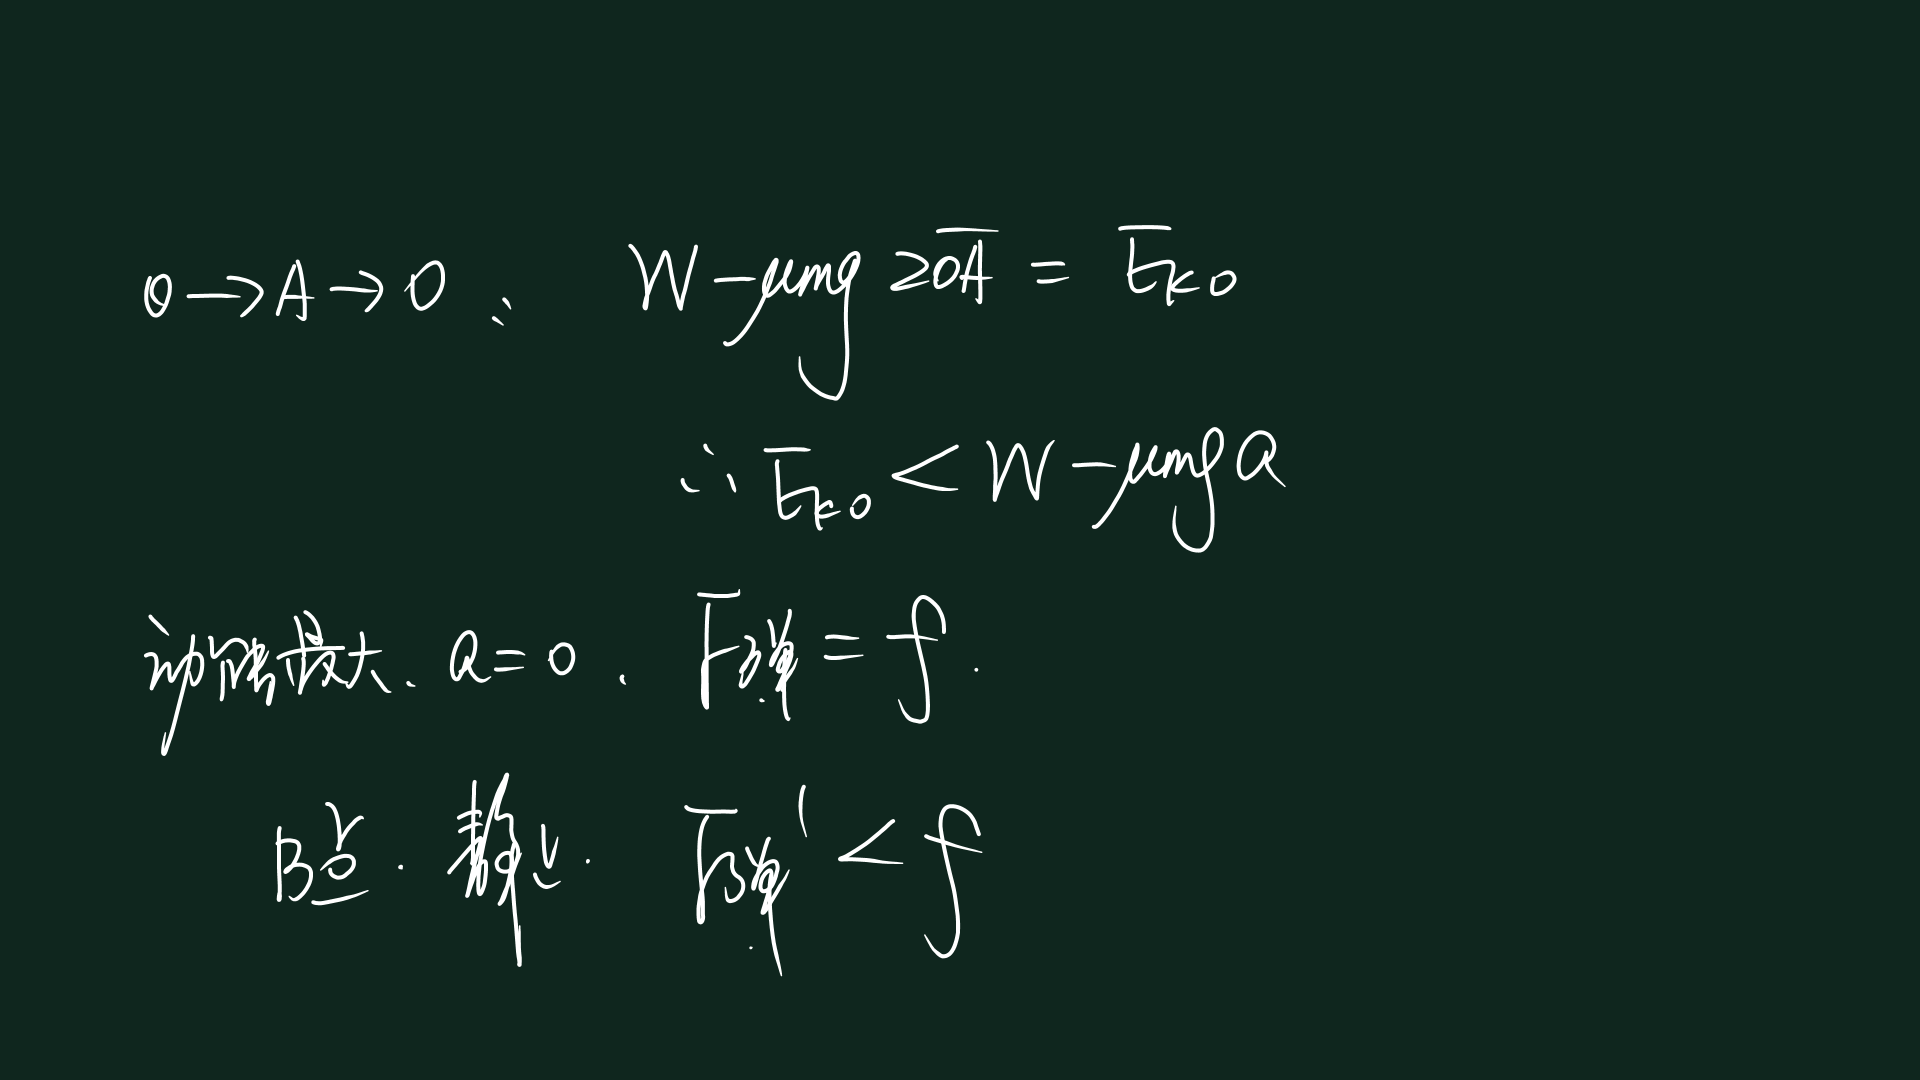 O→A→O: W-μmg2O̅A̅=E_KO
∴E_KO<W-μmga
动能最大.a=0.F弹=f.
B点.静止.F弹'<f